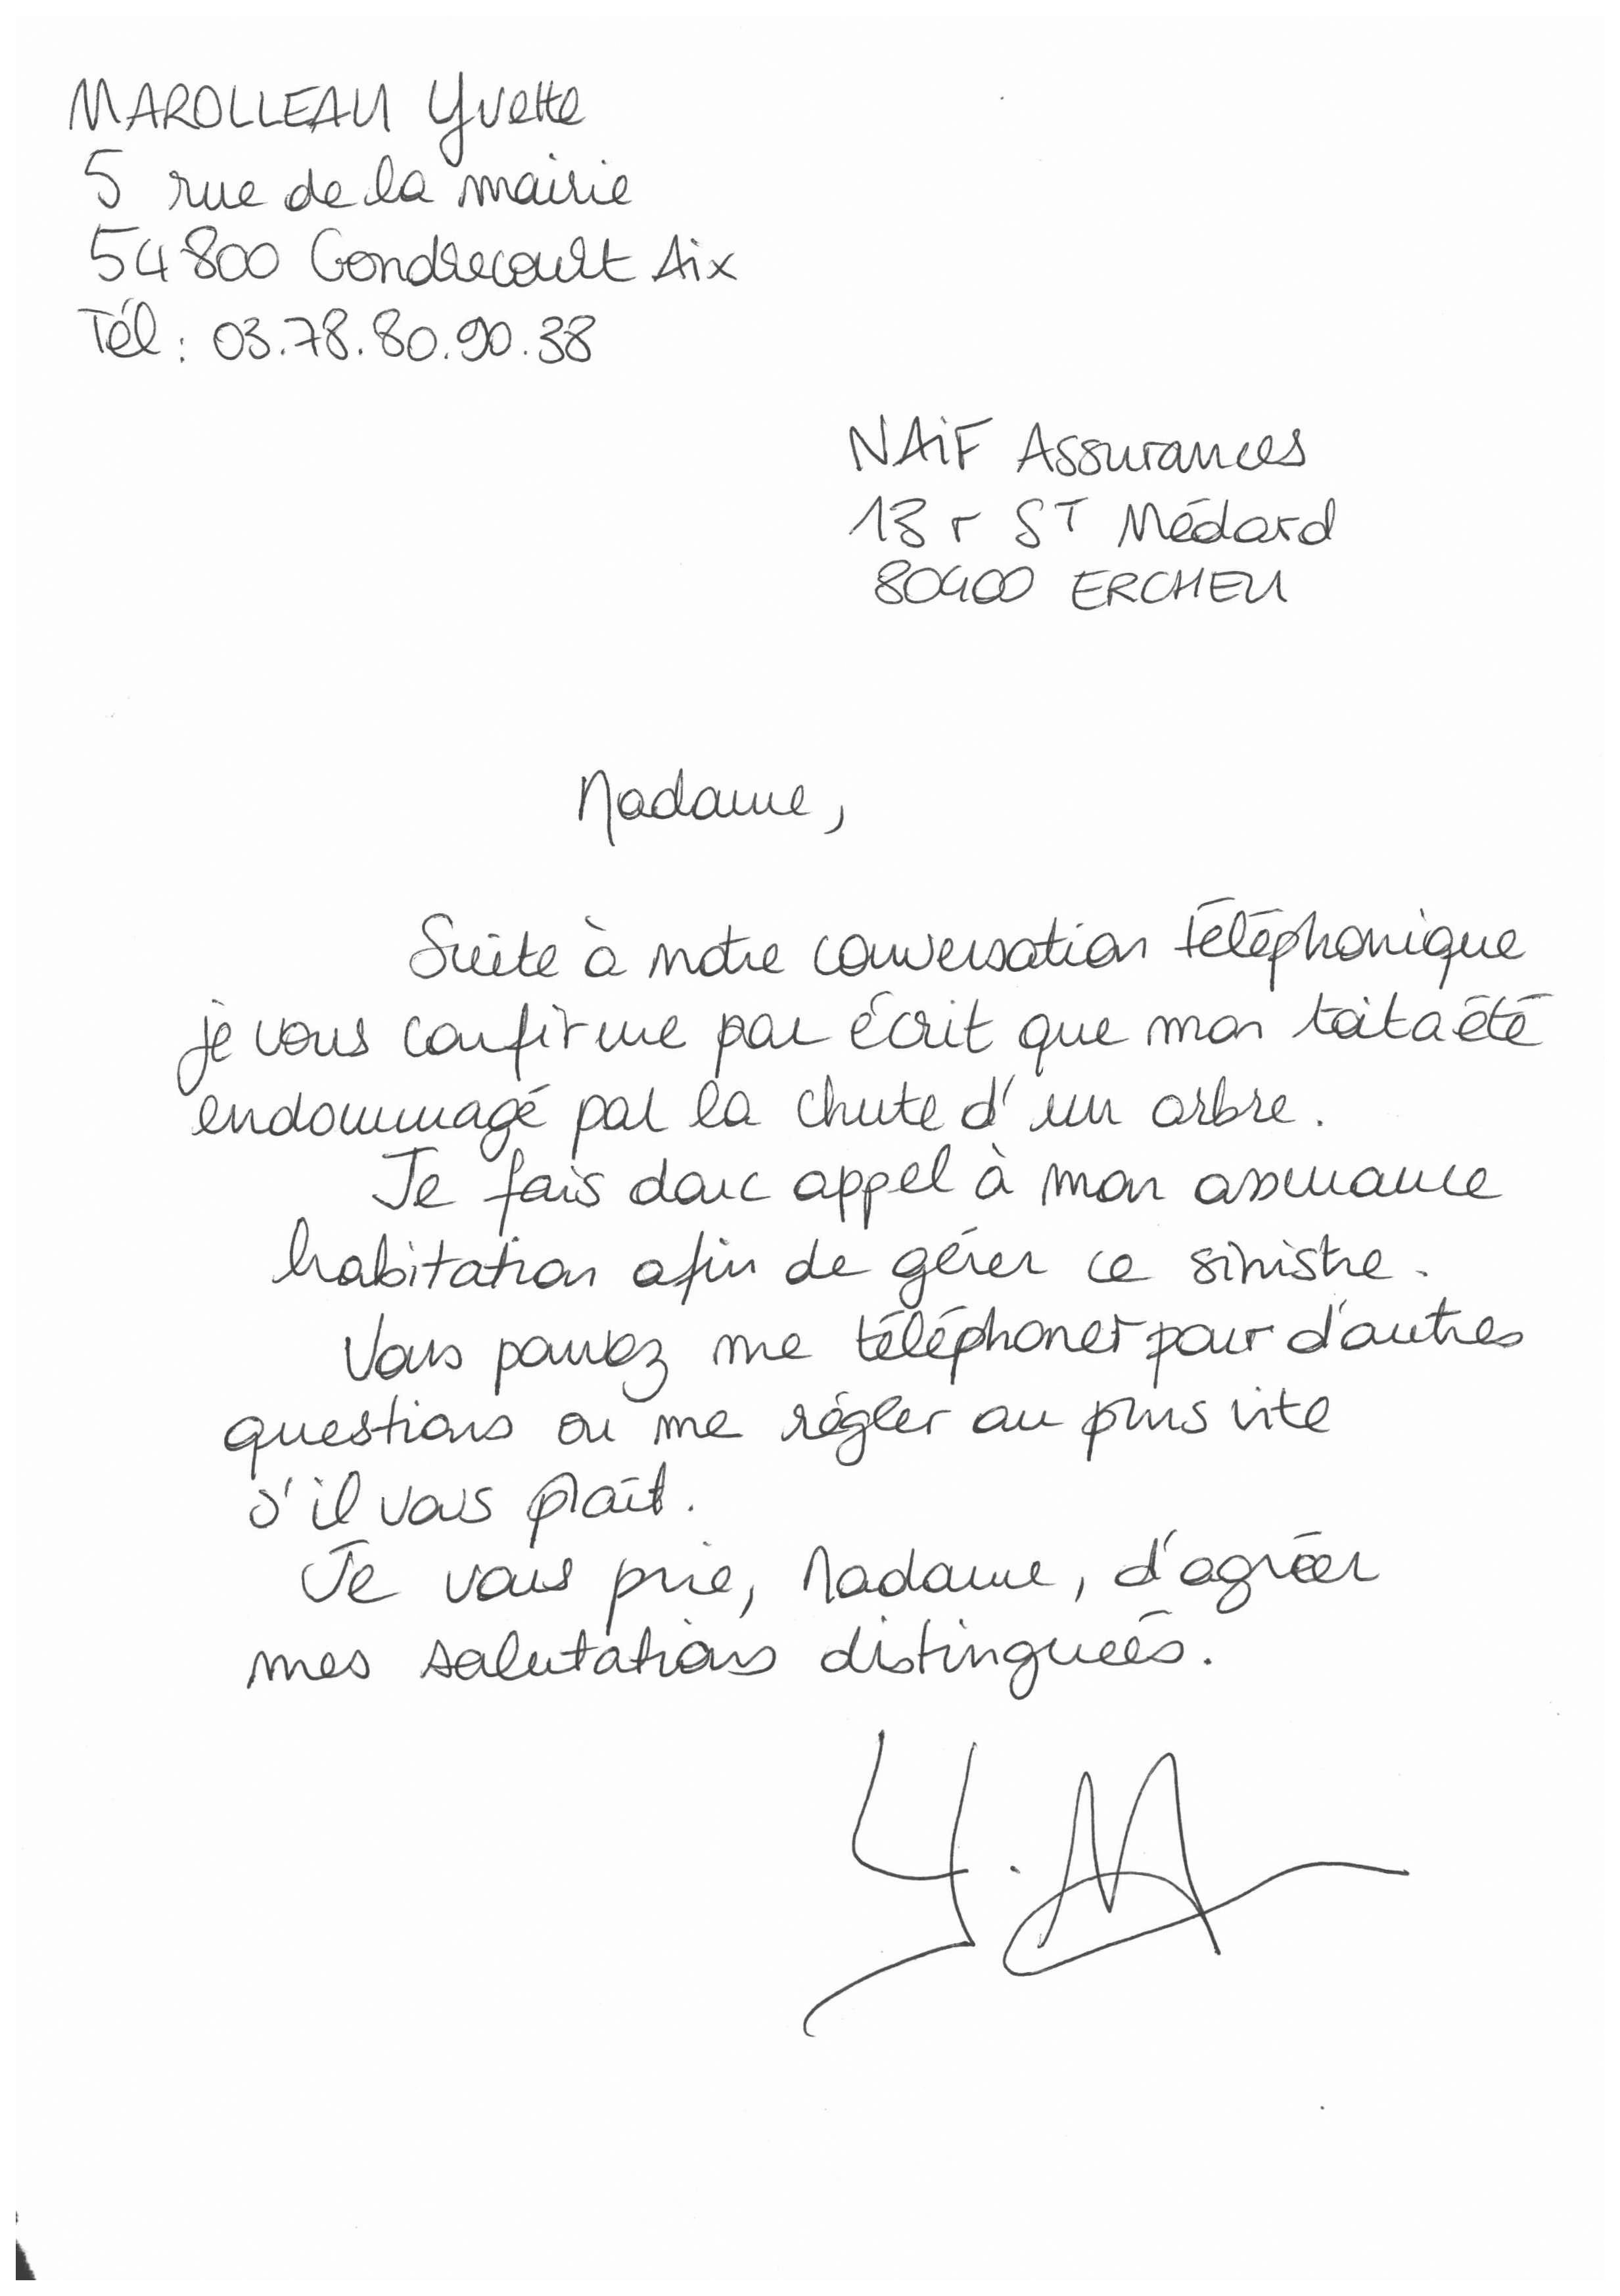 MAROLLEAU Yvette
5 rue de la mairie
54800 Gondrecourt Aix
Tél : 03.78.80.90.38
NAiF Assurances
13 r ST Médard
80400 ERCHEU
Madame,
Suite à notre conversation téléphonique
je vous confirme par écrit que mon toit a été
endommagé par la chute d'un arbre.
Je fais donc appel à mon assurance
habitation afin de gérer ce sinistre.
Vous pouvez me téléphoner pour d'autres
questions ou me régler au plus vite
s'il vous plaît.
Je vous prie, Madame, d'agréer
mes salutations distinguées.
Y.M